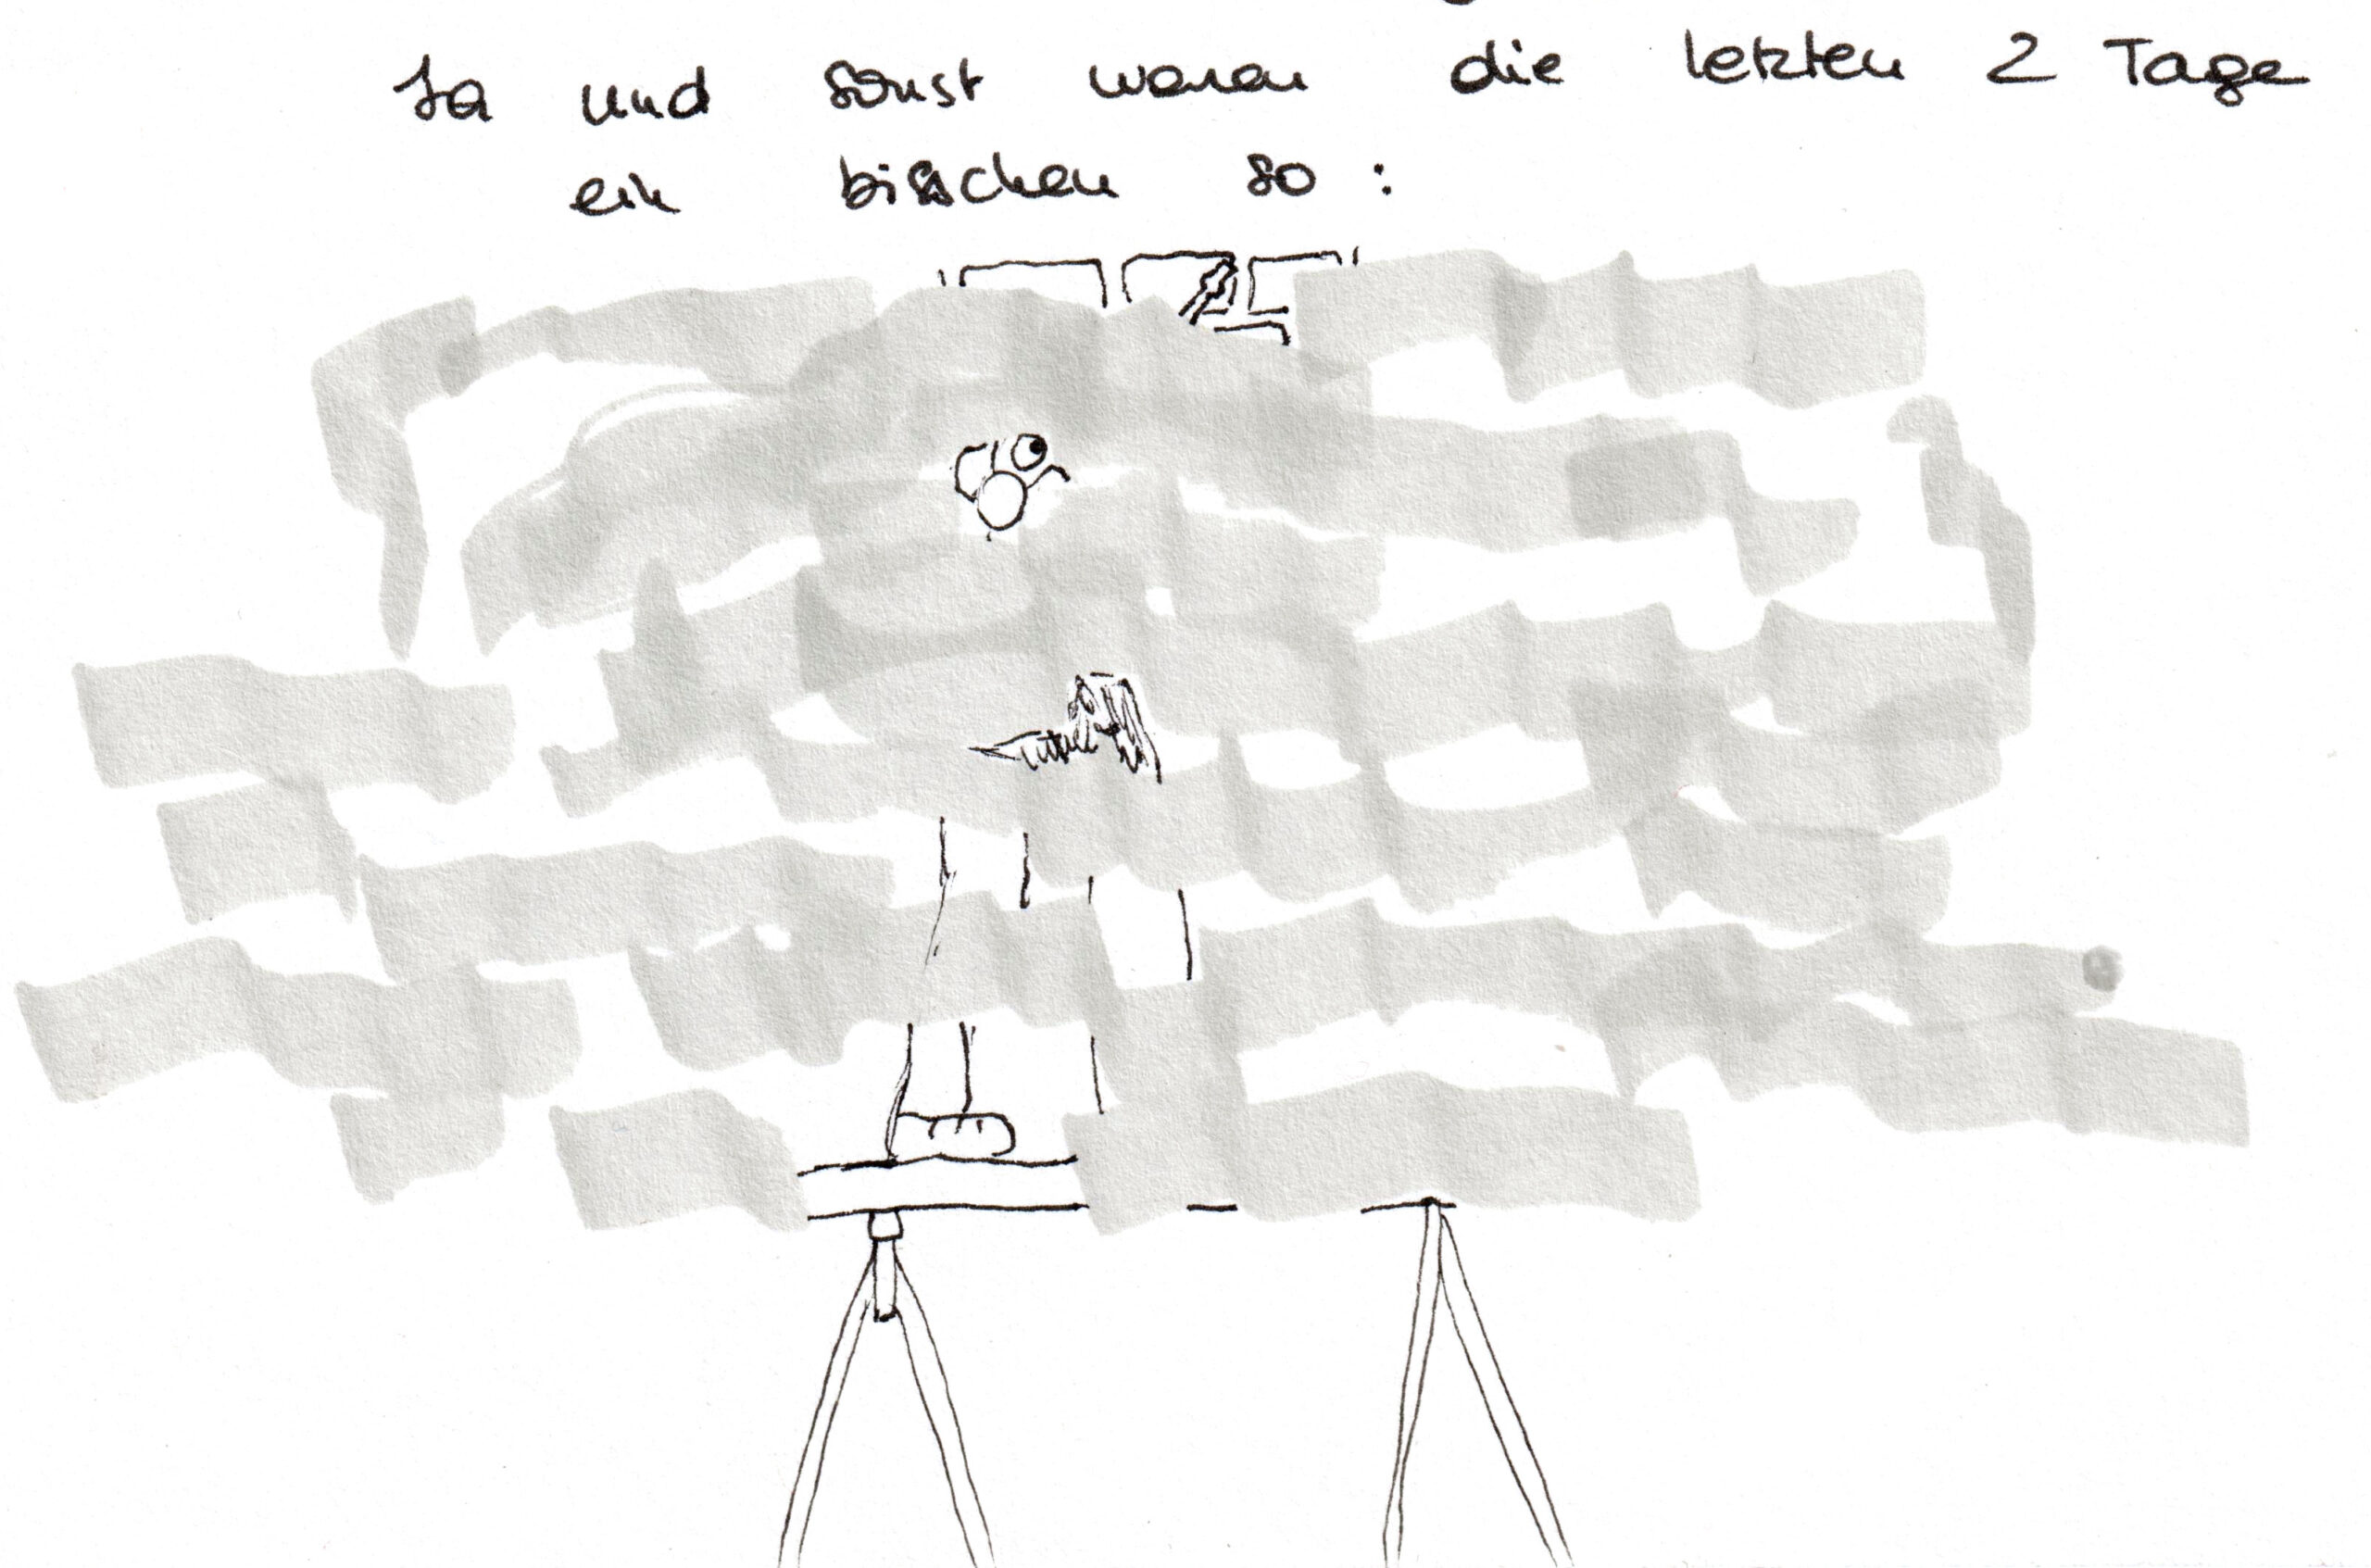 Ja und sonst waren die letzten 2 Tage
ein bisschen so: